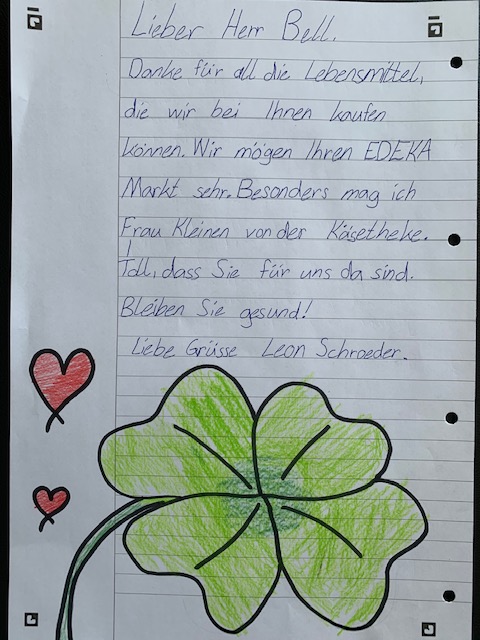 Lieber Herr Bell.
Danke für all die Lebensmittel,
die wir bei Ihnen kaufen
können. Wir mögen Ihren EDEKA
Markt sehr. Besonders mag ich
Frau Kleinen von der Käsetheke.
Toll, dass Sie für uns da sind.
Bleiben Sie gesund!
Liebe Grüsse Leon Schroeder.